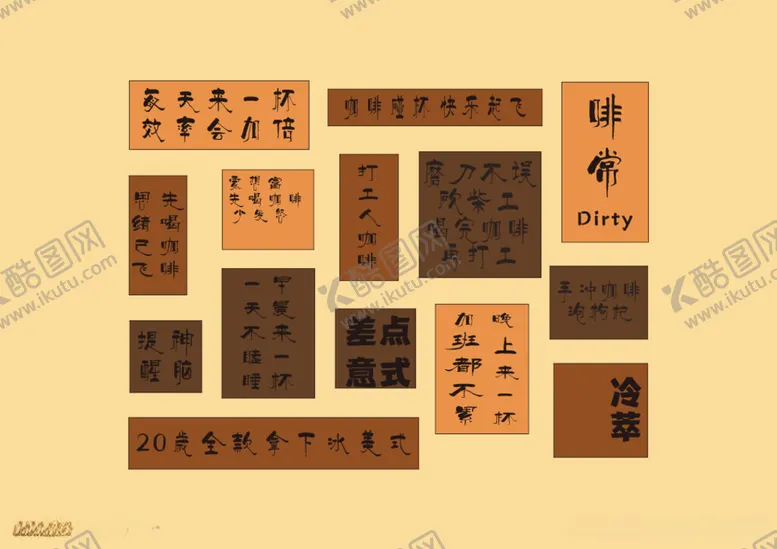 每天来一杯
效率会加倍
咖啡碰杯快乐起飞
啡常
Dirty
先喝咖啡
思绪已飞
想富
先喝咖啡
少发
打工人咖啡
磨刀不误
砍柴工
喝完咖啡
再打工
早晨来一杯
一天不瞌睡
手冲咖啡
泡枸杞
提神
醒脑
差点
意式
晚上来一杯
加班都不累
冷萃
20歳全款拿下冰美式
酷图网
www.ikutu.com